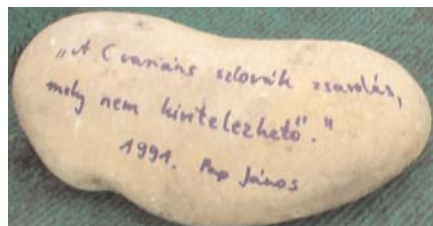 „A C variáns szlovák zsarolás,
mely nem kivitelezhető."
1991. Pap János